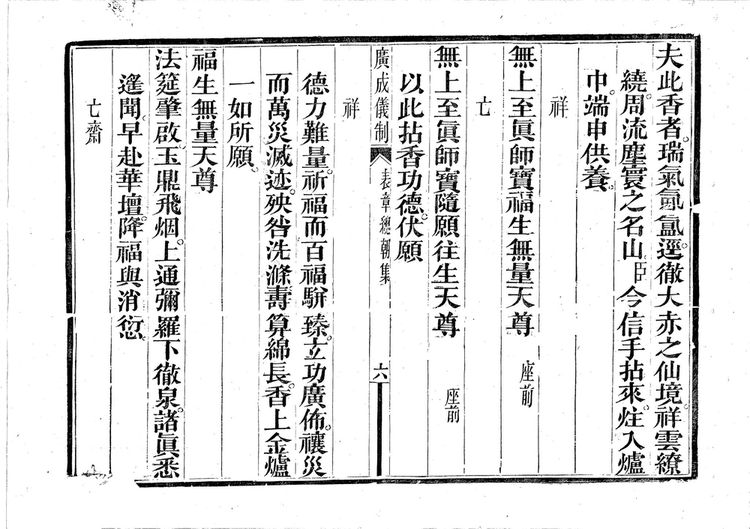 夫此香者。瑞氣氤氳。逕徹大赤之仙境。祥雲繚
繞。周流塵寰之名山。臣今信手拈來。炷入爐
中。端申供養。
祥
無上至眞師寶福生無量天尊 座前
亡
無上至眞師寶隨願往生天尊 座前
以此拈香功德。伏願
廣成儀制 表章總朝集 六
祥
德力難量。祈福而百福駢臻。立功廣佈。禳災
而萬災滅迹。殃咎洗滌。壽算綿長。香上金爐
一如所願。
福生無量天尊
法筵肇啟。玉鼎飛烟。上通彌羅下徹泉。諸眞悉
遙聞。早赴華壇。降福與消愆。
亡齋